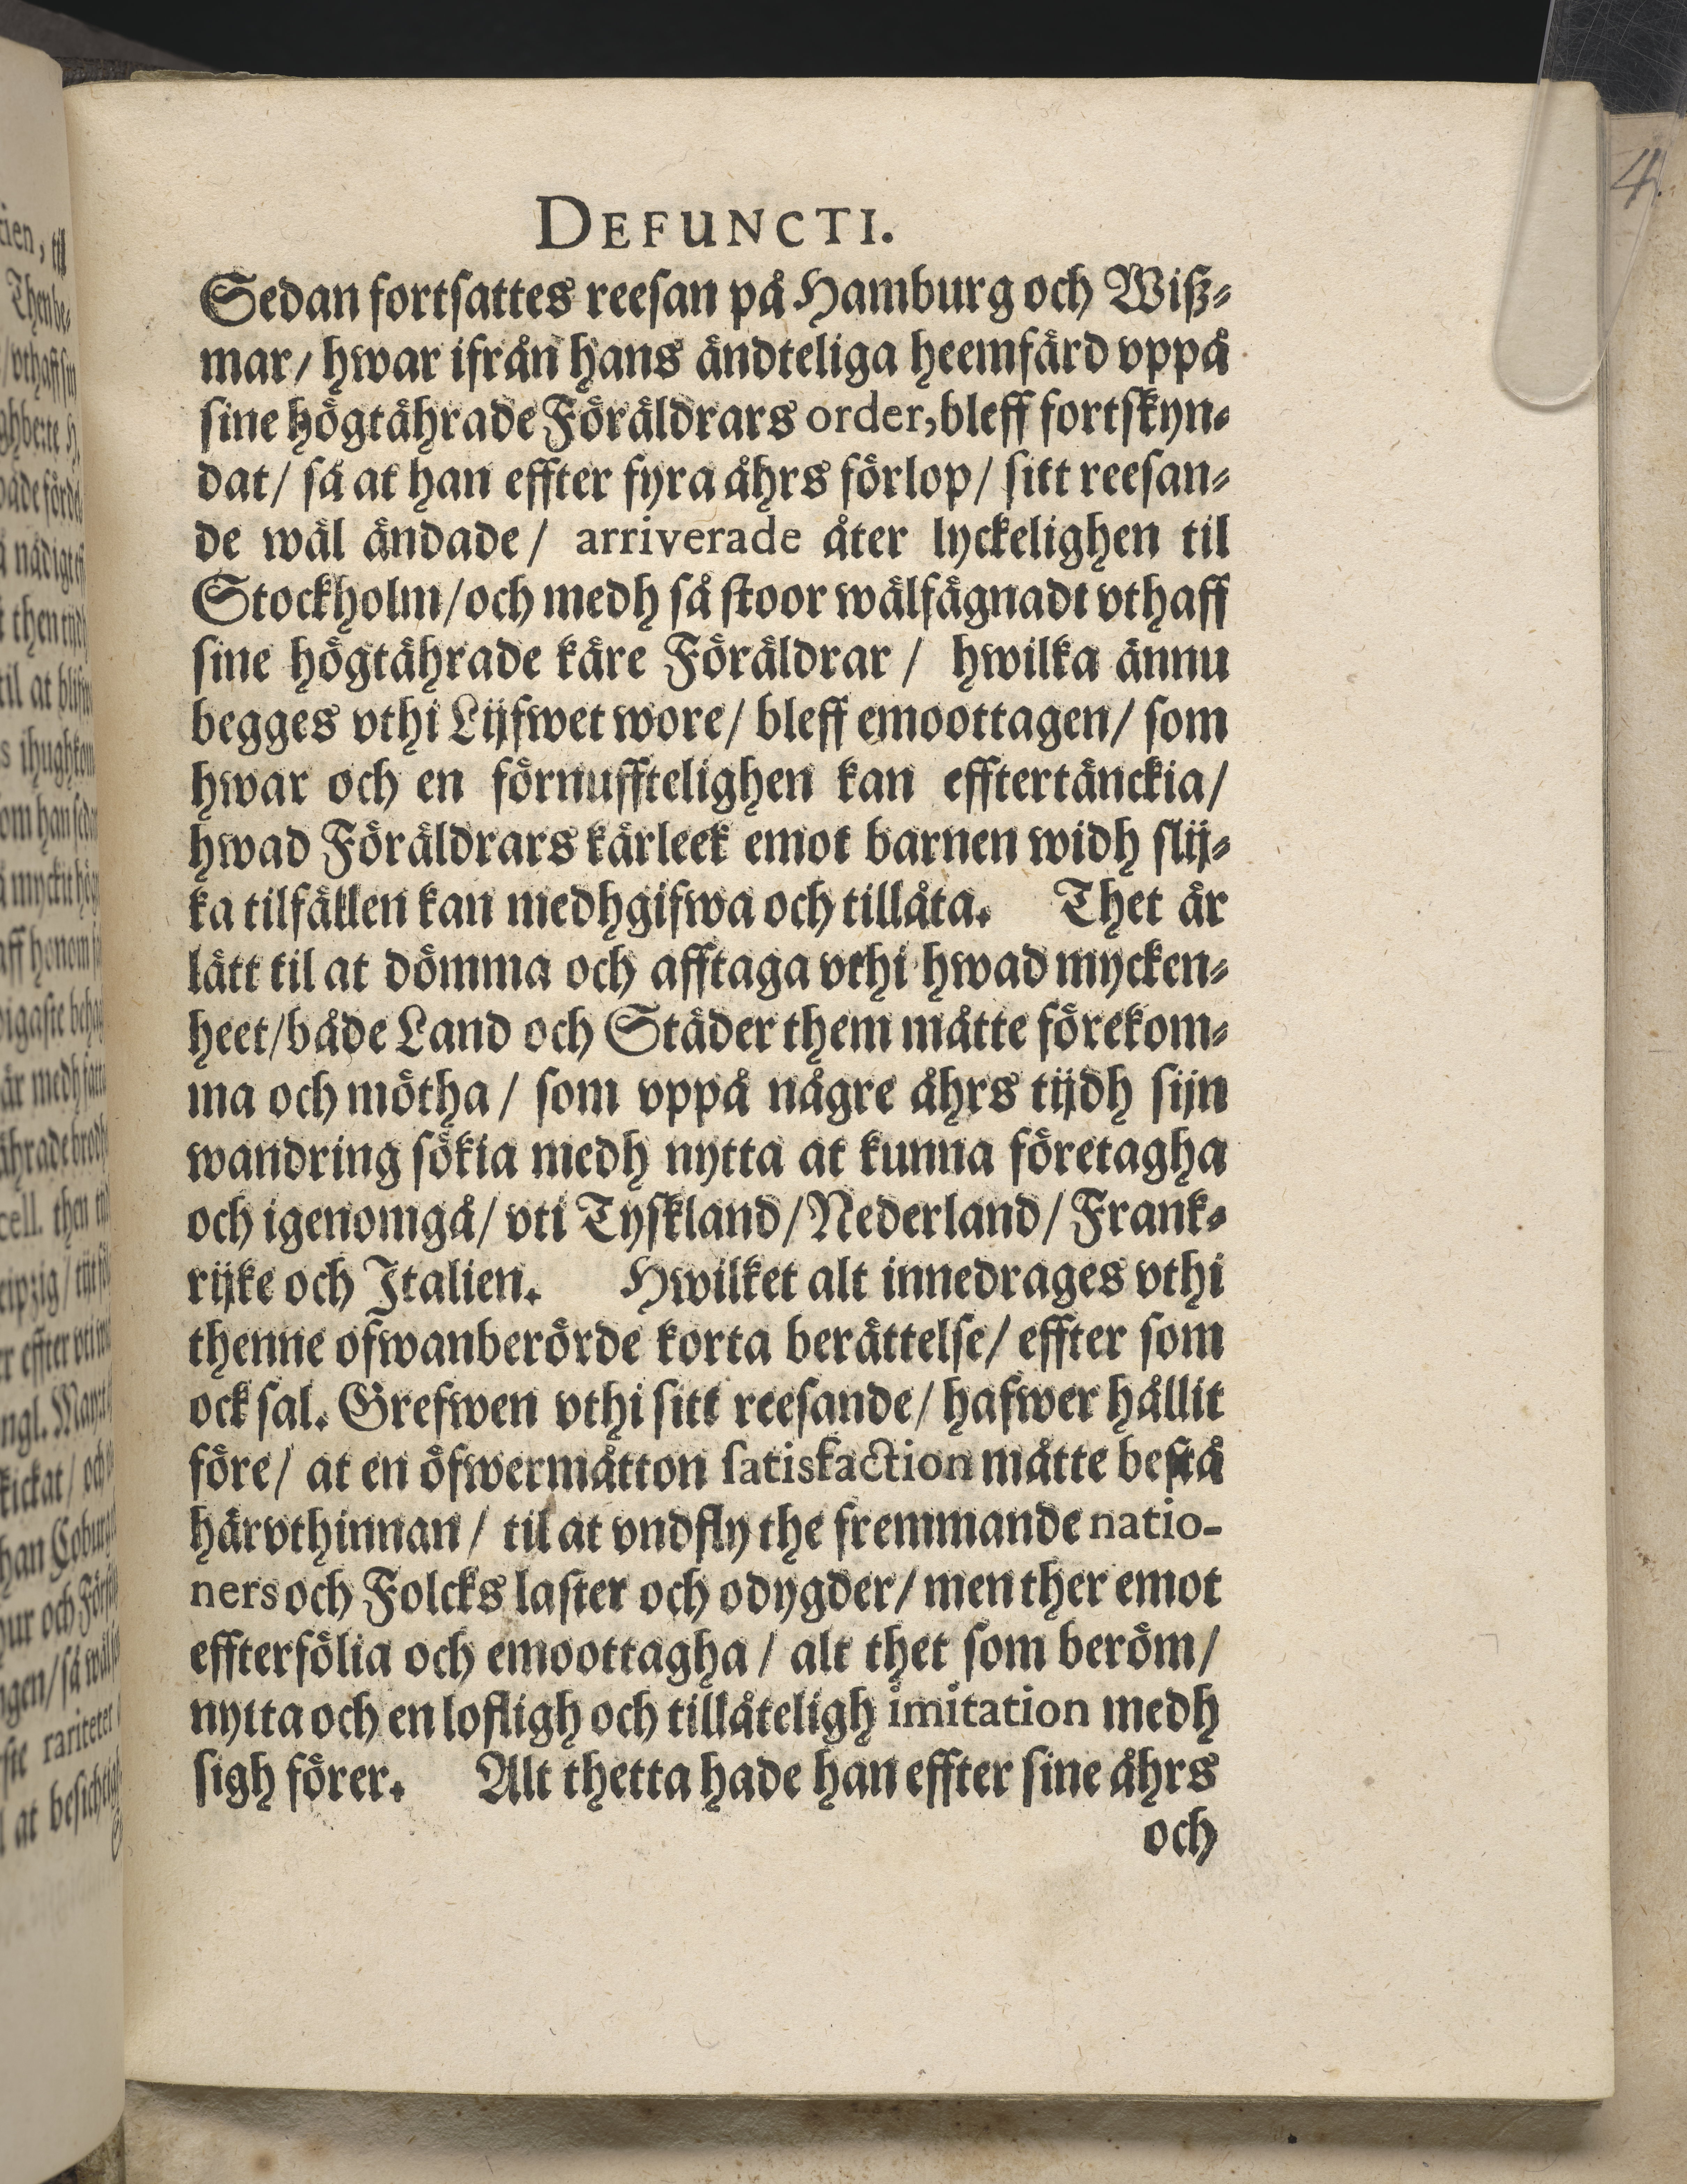 DEFUNCTI.
Sedan fortsattes reesan på Hamburg och Wiß-
mar/ hwar ifrån hans ändteliga heemfärd vppå
sine högtährade Föräldrars order, bleff fortskyn-
dat/ så at han effter fyra åhrs förlop/ sitt reesan-
de wäl ändade/ arriverade åter lyckelighen til
Stockholm/och medh så stoor wälfägnadt vthaff
sine högtährade käre Föräldrar / hwilka ännu
begges vthi Lijfwet wore/ bleff emoottagen/ som
hwar och en förnufftelighen kan efftertänckia/
hwad Föräldrars kärleek emot barnen widh slij-
ka tilfällen kan medhgifwa och tillåta. Thet är
lätt til at dömma och afftaga vthi hwad mycken-
heet/både Land och Städer them måtte förekom-
ma och mötha/ som vppå någre åhrs tijdh sijn
wandring sökia medh nytta at kunna företagha
och igenomgå/ vti Tyskland/Nederland/ Frank-
rijke och Italien. Hwilket alt innedrages vthi
thenne ofwanberörde korta berättelse/ effter som
ock sal. Grefwen vthi sitt reesande/ hafwer hållit
före/ at en öfwermåtton satisfaction måtte bestå
härvthinnan/ til at vndfly the fremmande natio-
ners och Folcks laster och odygder/ men ther emot
effterfölia och emoottagha / alt thet som beröm/
nytta och en lofligh och tillåteligh imitation medh
sigh förer. Alt thetta hade han effter sine åhrs
och
4.